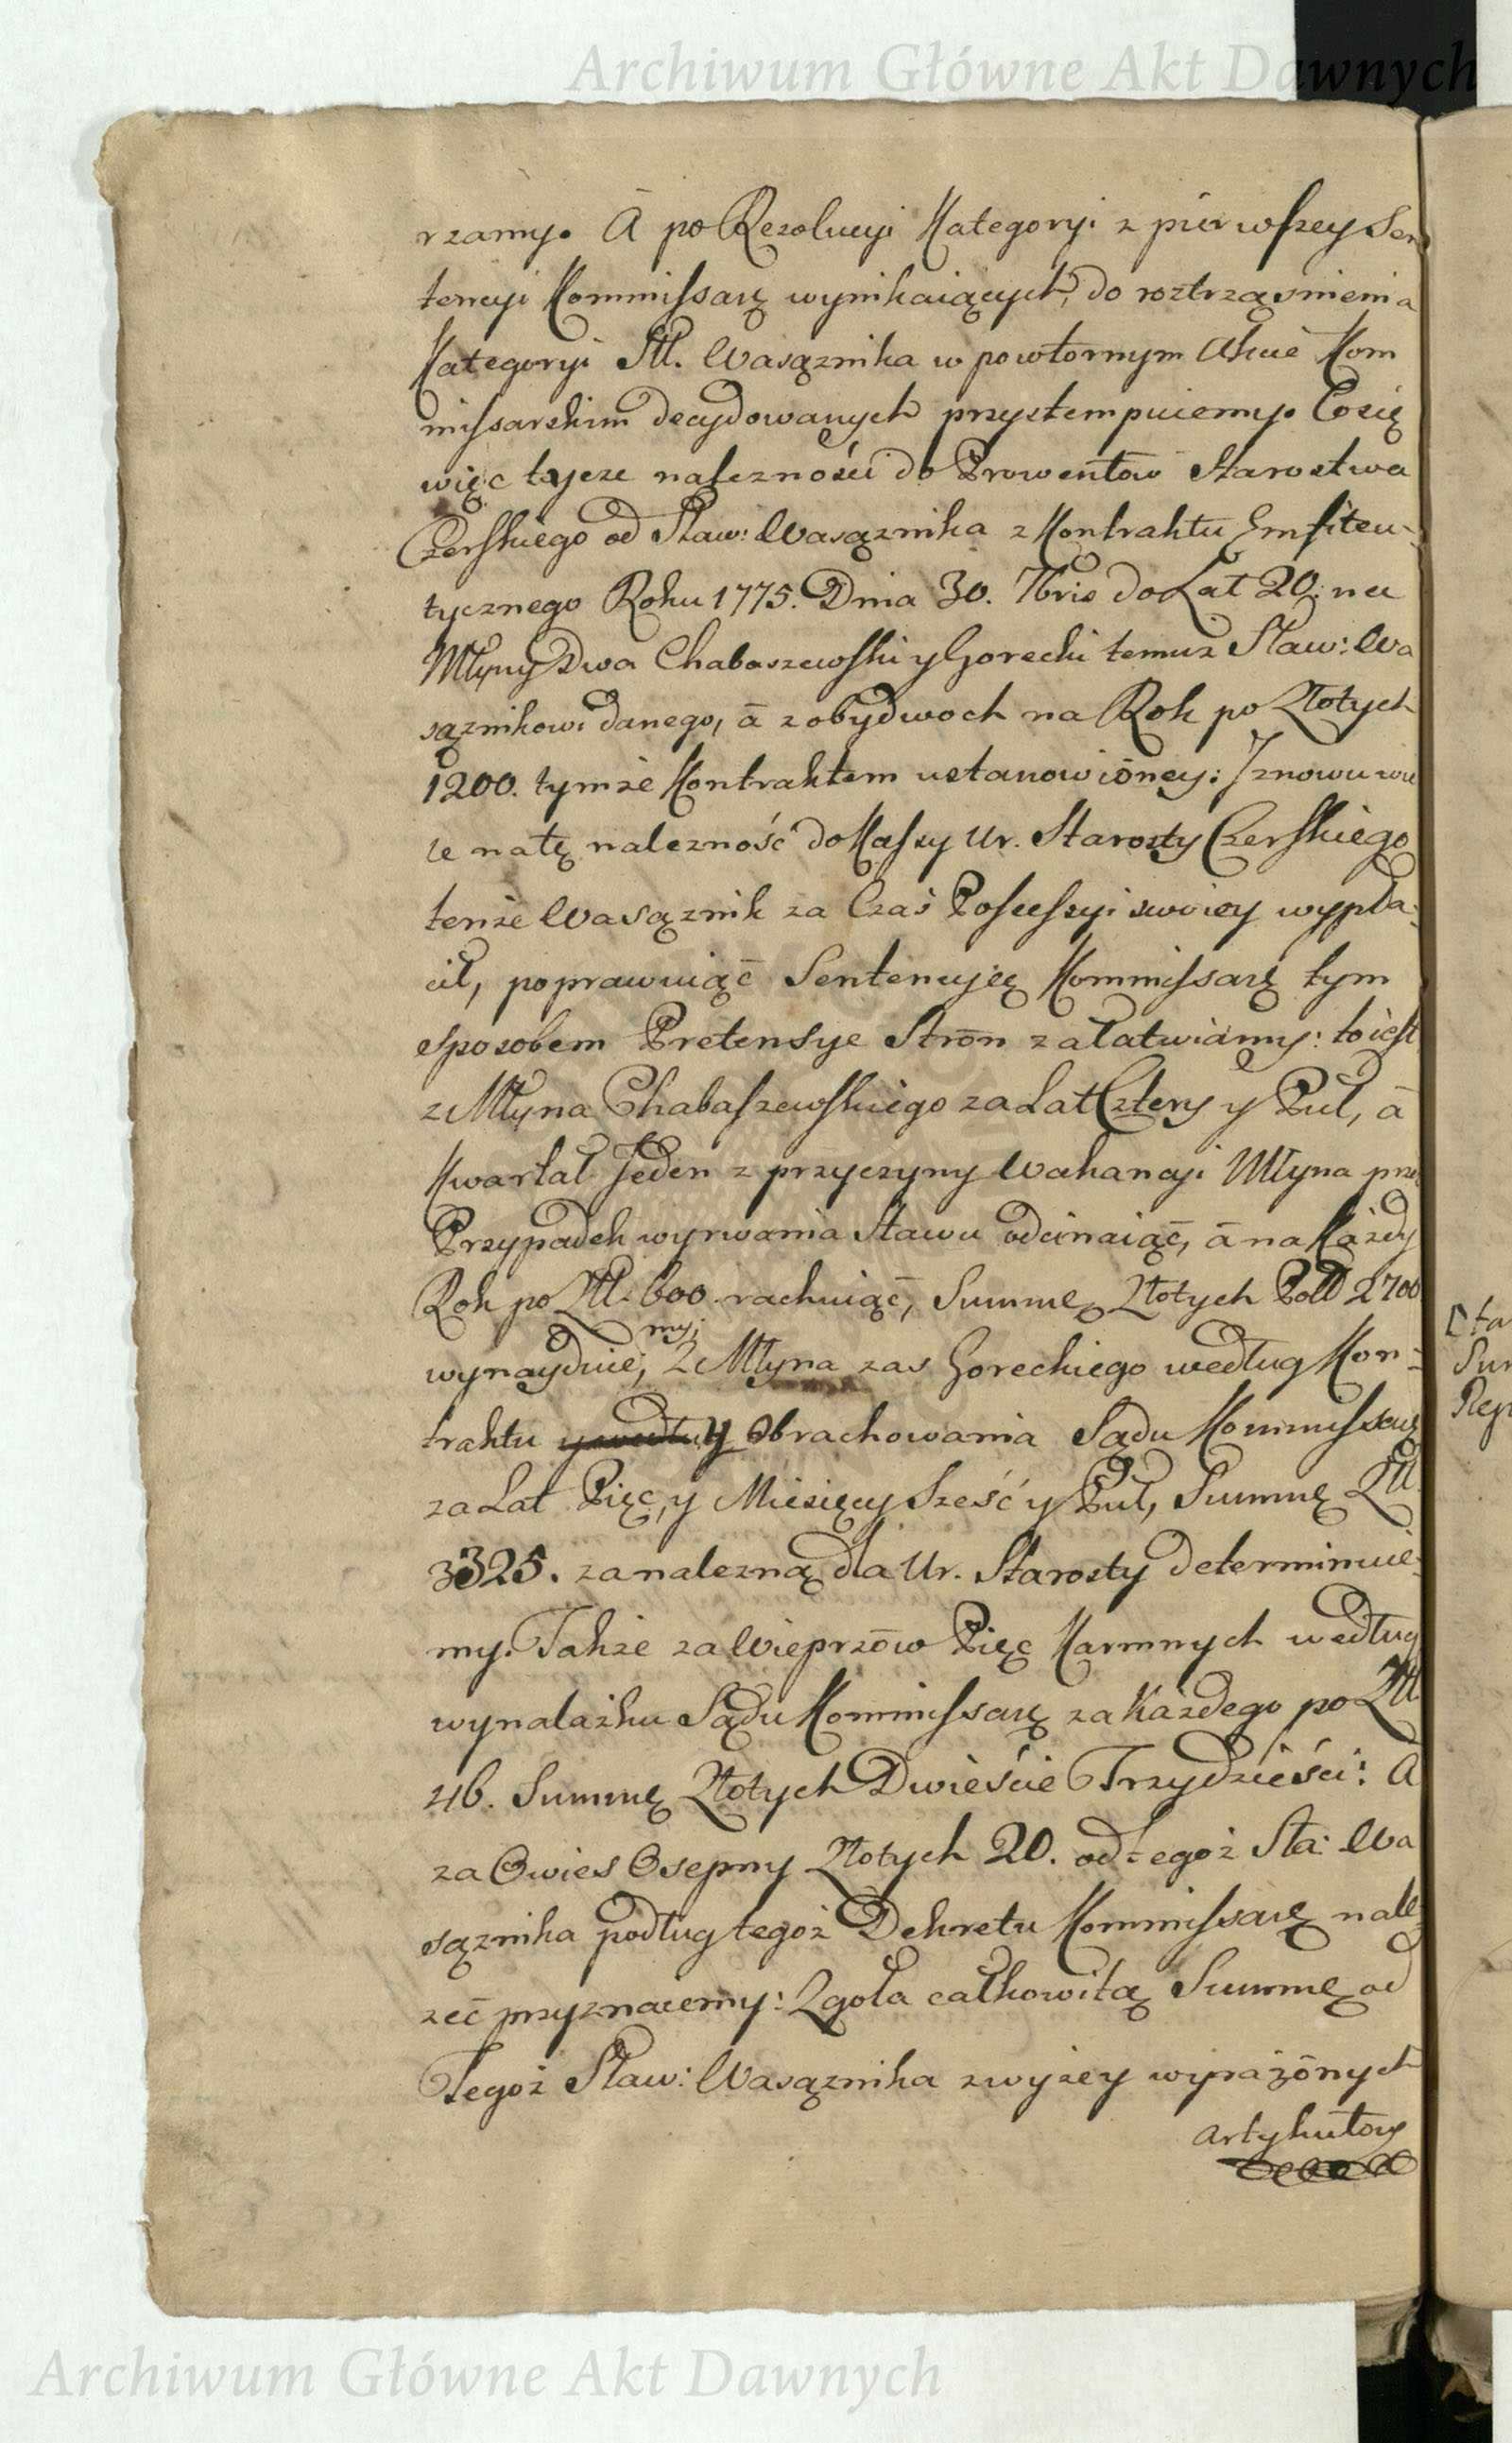 Archiwum Główne Akt Dawnych
rzamy. A po Rezolucyi Kategoryi z pierwszey Sen
tencyi Kommissarz wynikaiących, do roztrząsnienia
Kategoryi Sł. Wasąznika w powtornym Akcie Kom
missarskim decydowanych przystempuiemy. Co się
więc tycze nalezności do Prowentow Starostwa
Czerskiego od Sław: Wasąznika z Kontraktu Emfiteu-
tycznego Roku 1775. Dnia 30. 7bris do Lat 20. na
Młyny Dwa Chabaszewski y Gorecki temuz Sław: Wa
sąznikowi danego, á z obydwoch na Rok po Złotych
1200. tymże Kontraktem ustanowioney: I znowu wie
le na tę nalezność do Kassy Ur. Starosty Czerskiego
tenże Wasąznik za Czas Possessyi swoiey wypła-
cił, poprawuiąc Sentencyię Kommissarz tym
sposobem Pretensye Stron załatwiamy: to iest
z Młyna Chabaszewskiego za Lat Cztery y Puł, á
Kwartał Jeden z przyczyny Wakancyi Młyna prze
Przypadek wyrwania Stawu odcinaiąc, á na Każdy
Rok po Zł. 600. rachuiąc, Summę Złotych Poll 2700
wynayduie, my; z Młyna zas Goreckiego według Kon-
traktu y Obrachowania Sądu Kommissarz
za Lat Pięc, y Miesięcy Sześć y Puł, Summę Zł
3325. za nalezną dla Ur. Starosty determinuie-
my. Takze za Wieprzow Pięc Karmnych według
wynalazku Sądu Kommissarz za Każdego po Zł
46. Summę Złotych Dwieście Trzydzieści: A
za Owies Osepny Złotych 20. od tegoż Sła: Wa
sąznika podług tegoż Dekretu Kommissarz nale
żeć przyznaiemy: Zgoła całkowitą Summę od
Tegoż Sław: Wasąznika zwyżey wyrażonych
Artykułow
Sum
Rep
Archiwum Główne Akt Dawnych